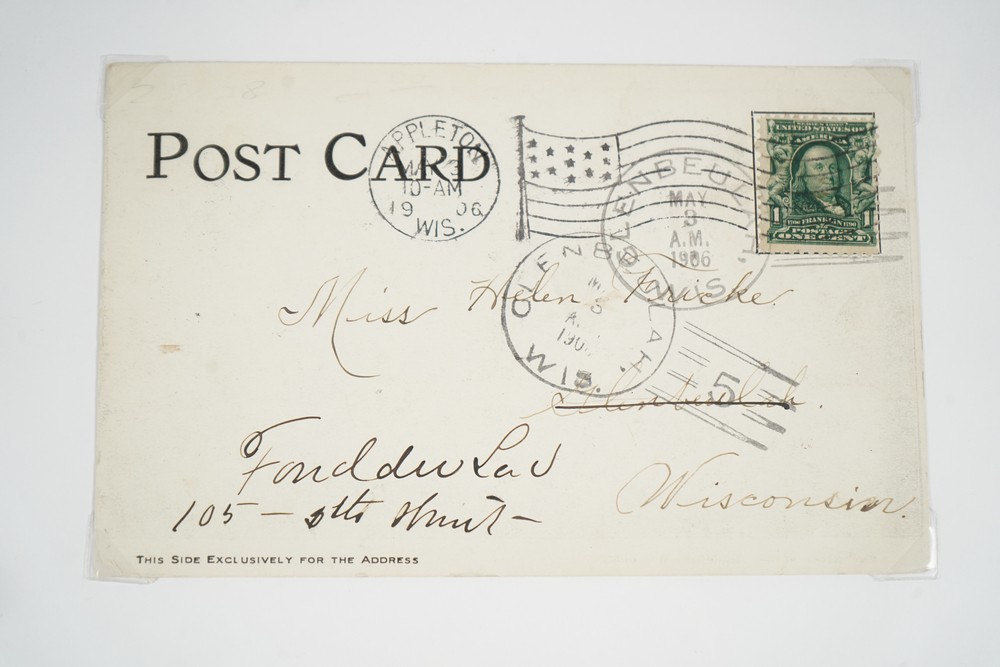 POST CARD
APPLETON
10-AM
1906
WIS.
GLENBEULAH.
MAY
3
A.M.
1906
WIS.
SERIES 1902
UNITED STATES OF
AMERICA
1 FRANKLIN 1
POSTAGE
ONE CENT
GLENBEULAH.
A.
WIS.
5
Miss Helen Fricke
Glenbeulah.
Fond du Lac
105 – 5th Street –
Wisconsin.
THIS SIDE EXCLUSIVELY FOR THE ADDRESS